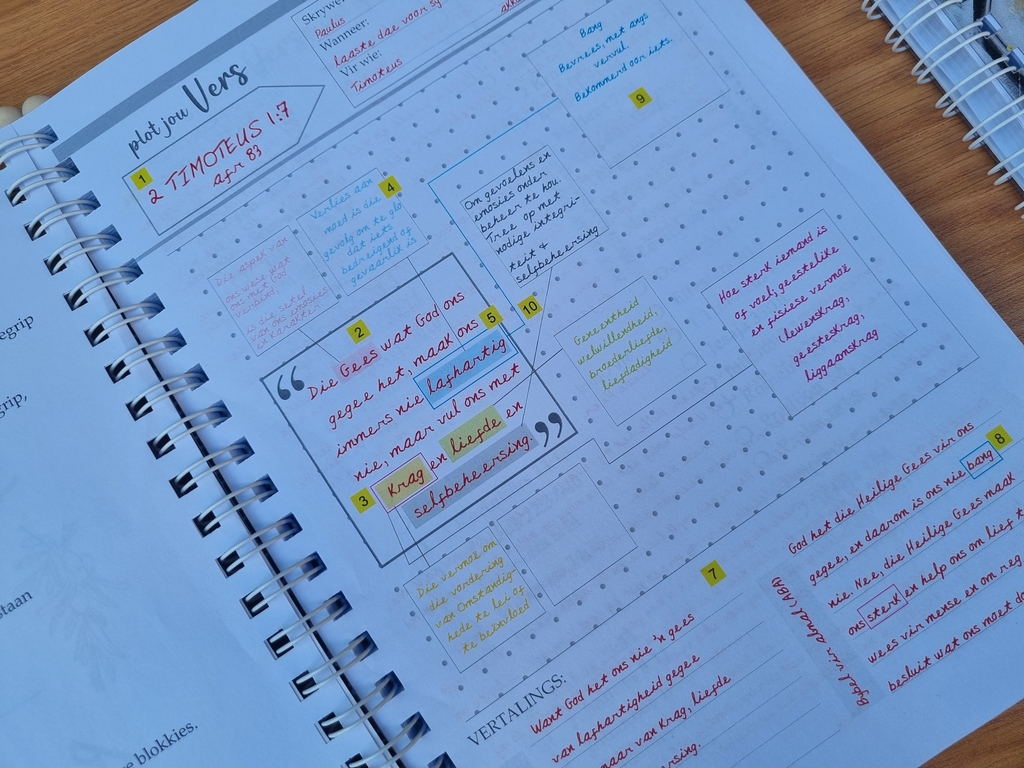 Skrywer:
Paulus
Wanneer:
Laaste dae voor sy
Vir wie:
Timoteus
plot jou Vers
1
2 TIMOTEUS 1:7
afr 83
Bang
Bevrees, met angs
vervul.
Bekommerd oor iets.
9
4
Verlies aan
moed is die
gevolg om te glo
dat iets
bedreigend of
gevaarlik is
Om gevoelens en
emosies onder
beheer te hou.
Tree op met
nodige integri-
teit &
selfbeheersing
10
Hoe sterk iemand is
of voel; geestelike
en fisiese vermoë
(lewenskrag,
geesteskrag,
liggaamskrag
Geneentheid
welwillendheid,
broederliefde,
liefdadigheid
2
5
3
“Die Gees wat God ons
gegee het, maak ons
immers nie lafhartig
nie, maar vul ons met
krag en liefde en
selfbeheersing.”
Die vermoë om
die vordering
van Omstandig-
hede te lei of
te beïnvloed
7
VERTALINGS:
Want God het ons nie 'n gees
van lafhartigheid gegee
maar van krag, liefde
8
Bybel vir almal (ABA)
God het die Heilige Gees vir ons
gegee, en daarom is ons nie bang
nie. Nee, die Heilige Gees maak
ons sterk en help ons om lief
wees vir mense en om reg
besluit wat ons moet
egrip
grip,
staan
e blokkies.